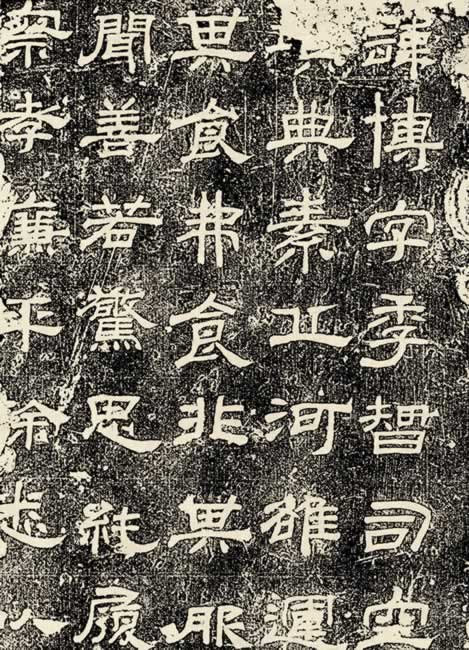 諱博字季智司空
典素丘河雒運
其食弗食非其服
聞善若驚思純履
孝廉除志以